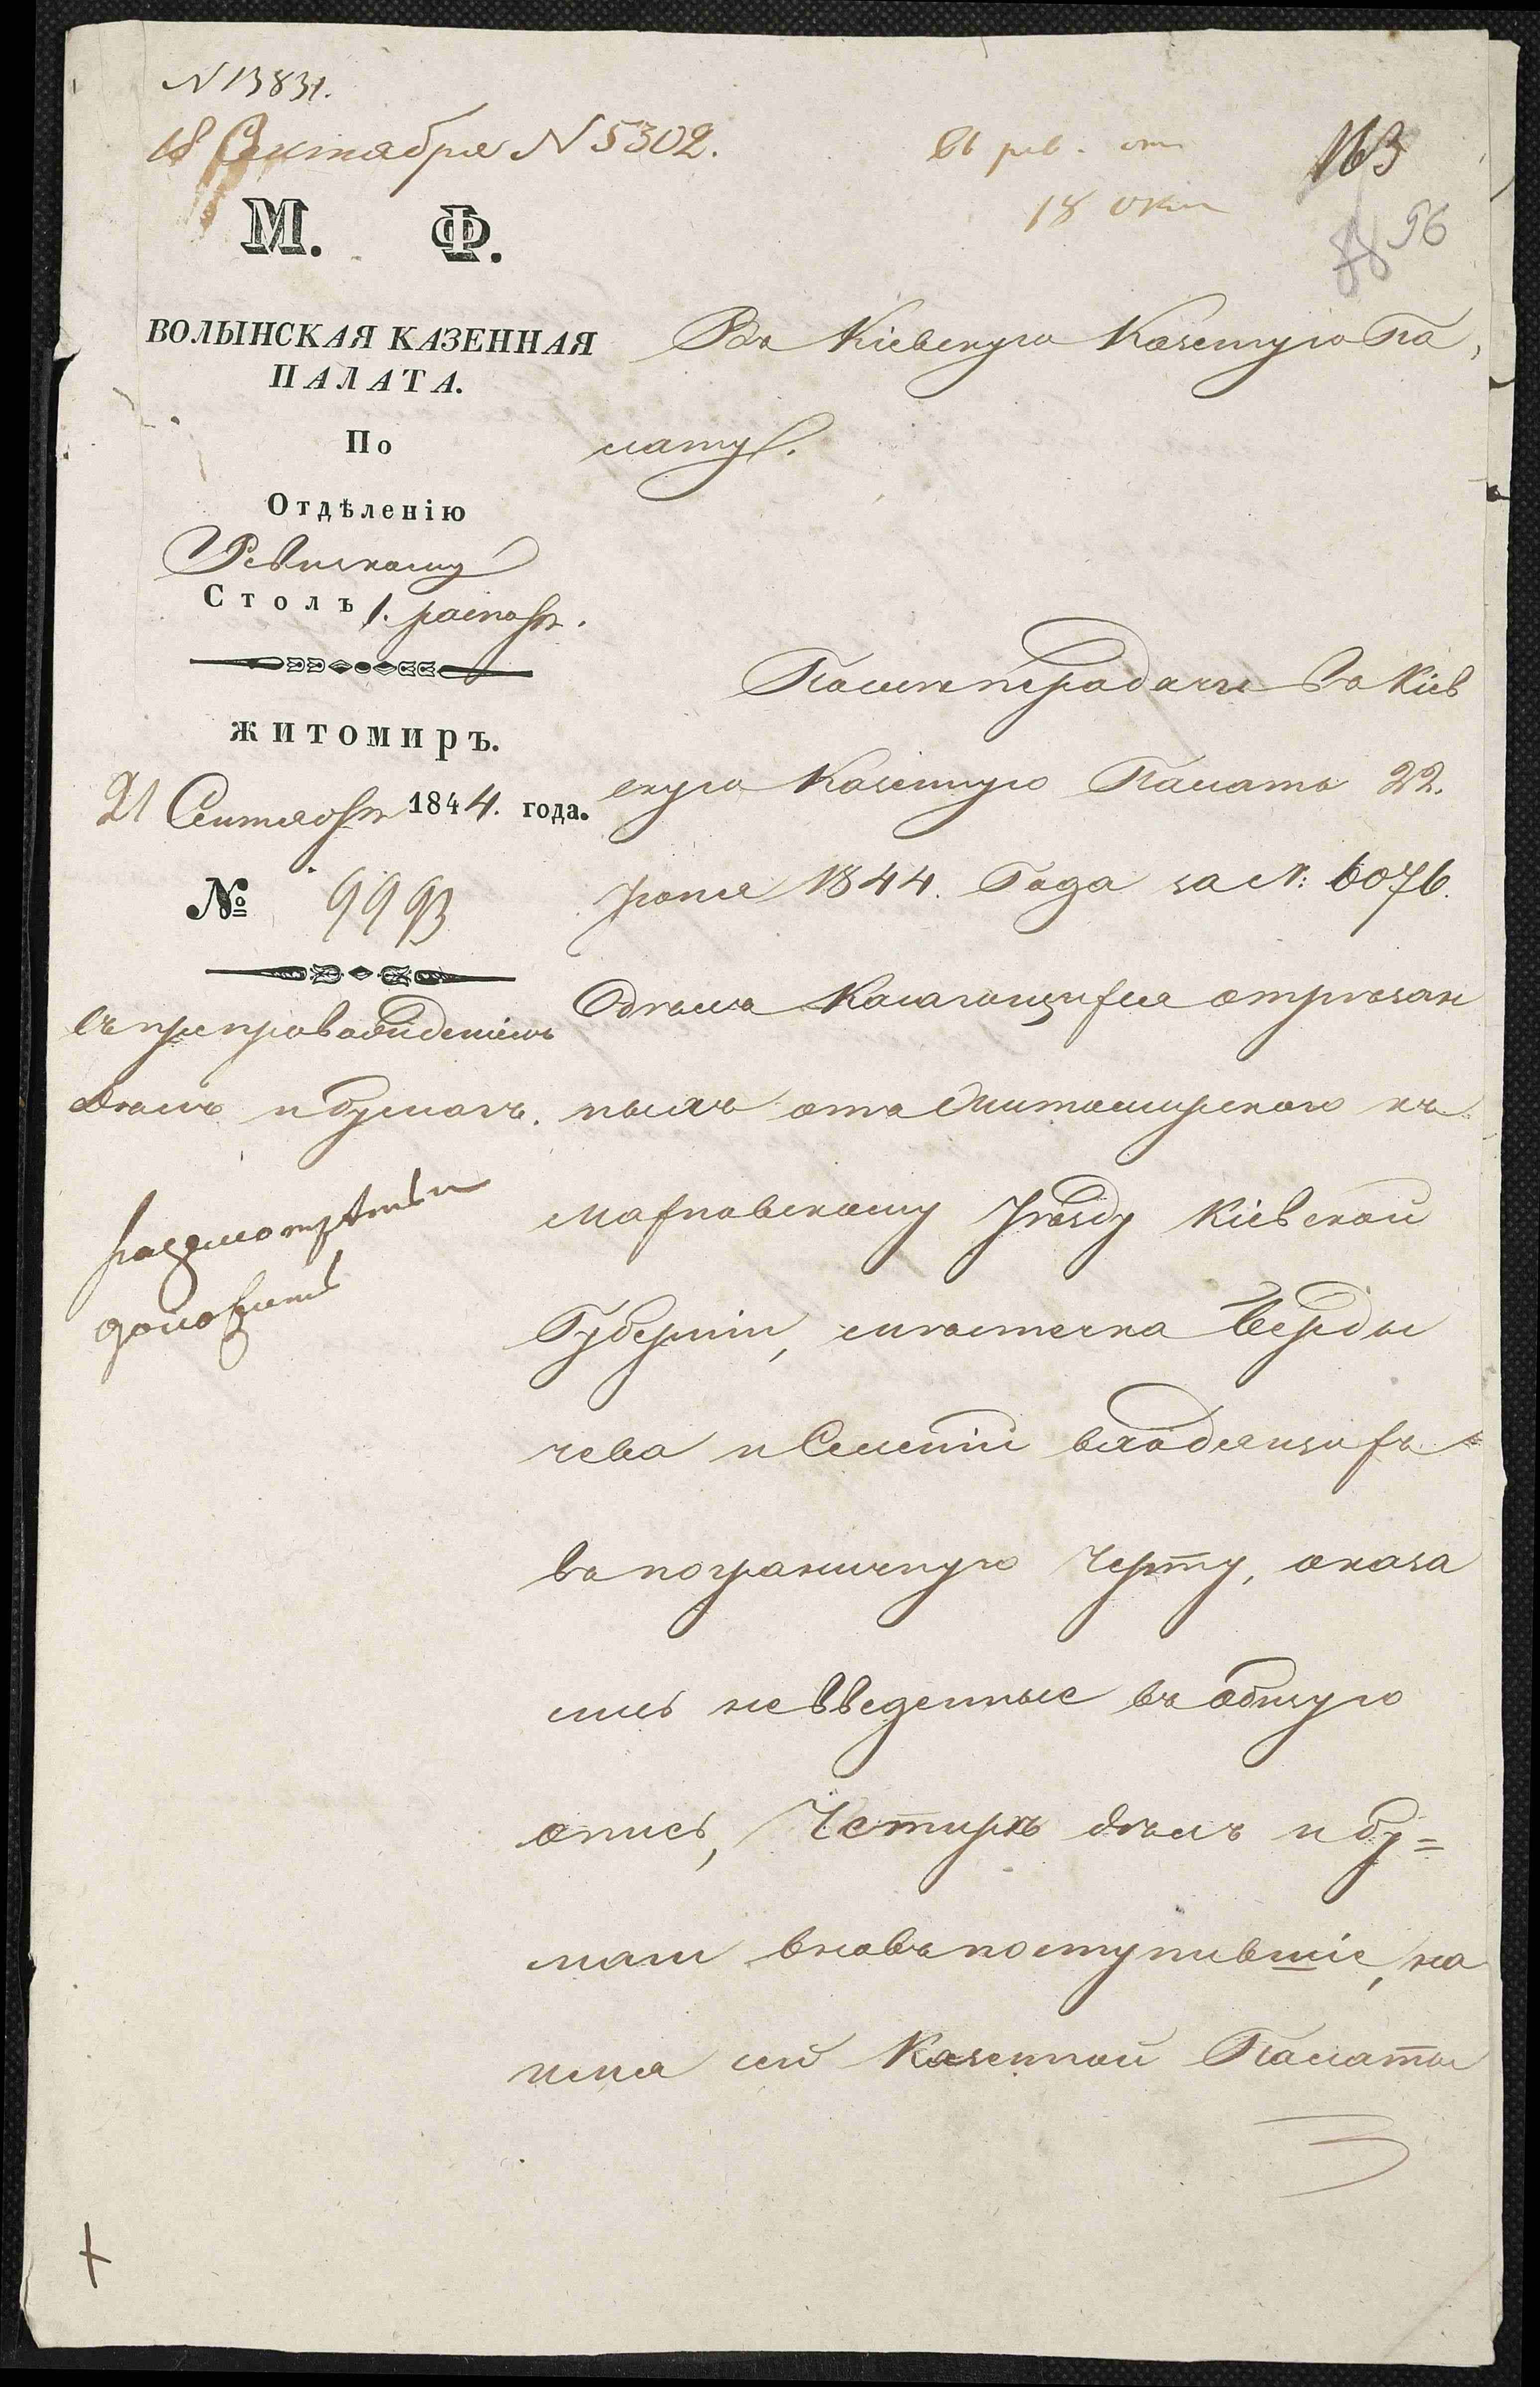 N 13831.
18 Октября N 5302.
въ рев. от
18 окт
163
88 56
М. Ф.
ВОЛЫНСКАЯ КАЗЕННАЯ
ПАЛАТА.
По
Отдѣленію
Ревизскому
Столъ 1. распор.
ЖИТОМИРЪ.
21 Сентября 1844. года.
№ 9993
Съ препровожденіемъ
дѣлъ и бумагъ.
разсмотрѣть и
доложить
Въ Кіевскую Казенную Па,
лату.
По непередачѣ въ Кіев
скую Казенную Палату 22.
Іюня 1844. Года за N: 6076.
Дѣлъ касающихся отрѣзан
ныхъ отъ Житомирскаго къ
Махновскому Уѣзду Кіевской
Губерніи, мѣстечка Берды
чева и Селеній входящихъ
въ пограничную Черту, оказа
лись не введенные въ общую
опись, Четыре дѣлъ и бу=
маги вновь поступившіе, на
имя сей Казенной Палаты